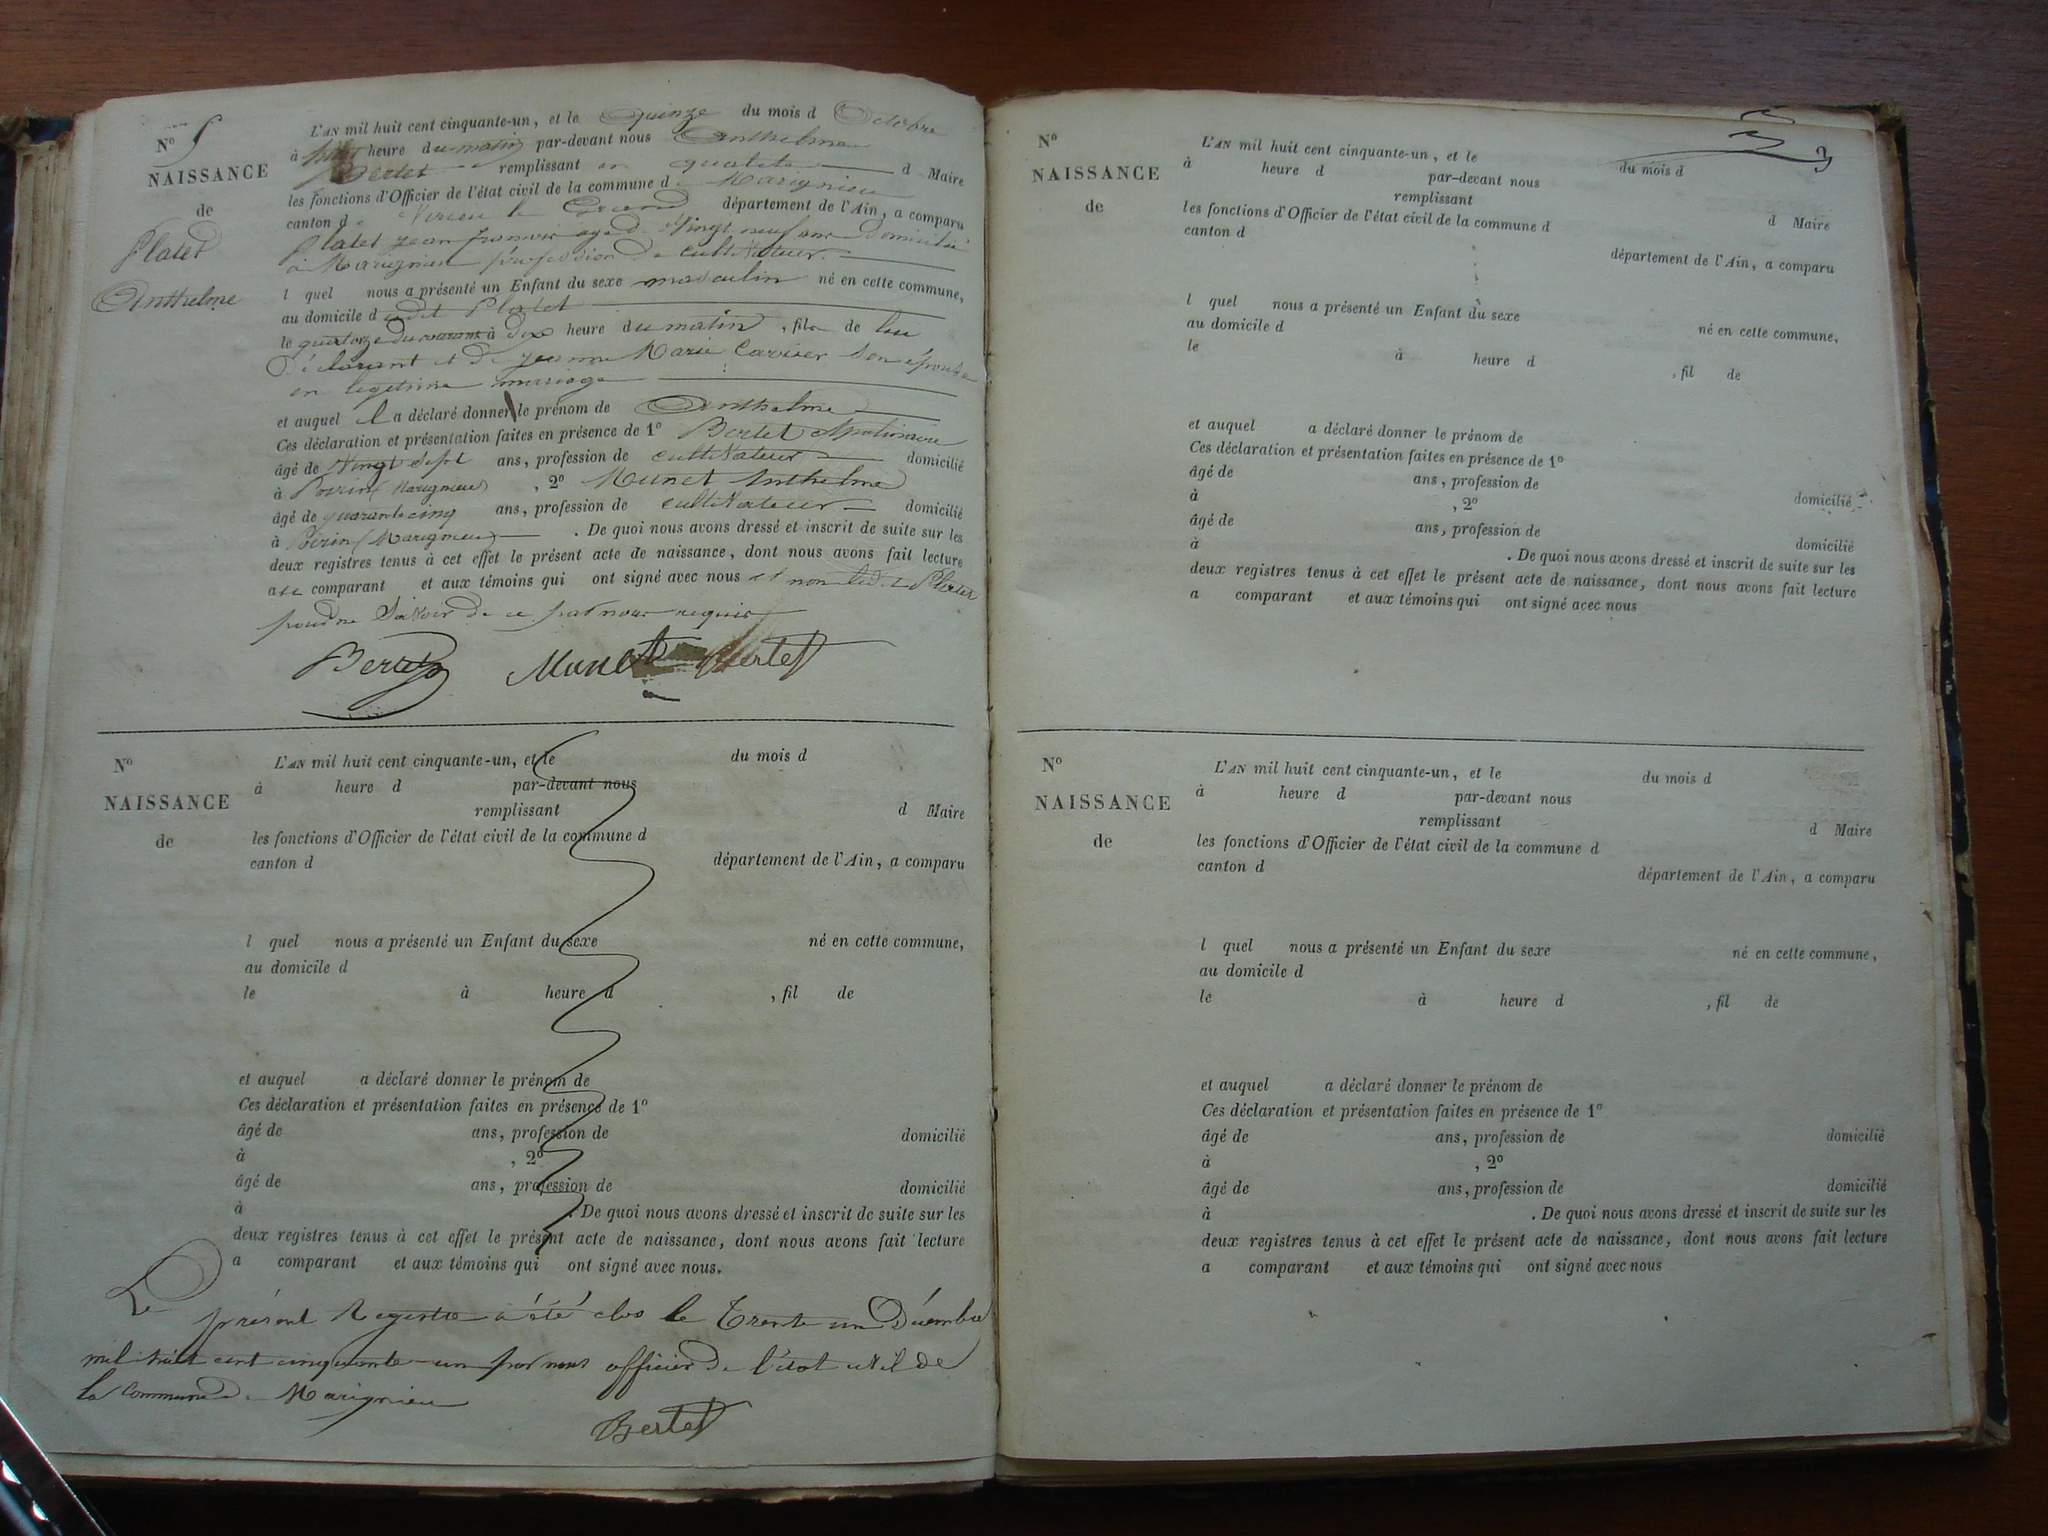 Nº 5
NAISSANCE
de
Platet
Anthelme
L'AN mil huit cent cinquante-un, et le Quinze du mois d Octobre
à heure du matin par-devant nous Anthelme
Bertet remplissant en qualité d Maire
les fonctions d'Officier de l'état civil de la commune de Marignieu
canton de Virieu le Grand département de l'Ain, a comparu
Platet jean françois agé de Vingt neuf ans domicilié
à Marignieu profession de cultivateur
l quel nous a présenté un Enfant du sexe masculin né en cette commune,
au domicile dudit Platet
le quatorze du courant à dix heure du matin, fils de lui
Déclarant et de jeanne Marie Carrier son épouse
en legitime mariage
et auquel il a déclaré donner le prénom de Anthelme
Ces déclaration et présentation faites en présence de 1º Bertet
âgé de Vingt sept ans, profession de cultivateur domicilié
à (Marignieu), 2º Munet Anthelme
âgé de quarante cinq ans, profession de cultivateur domicilié
à (Marignieu). De quoi nous avons dressé et inscrit de suite sur les
deux registres tenus à cet effet le présent acte de naissance, dont nous avons fait lecture
au comparant et aux témoins qui ont signé avec nous et non ledit Platet
pour ne savoir de ce par nous requis
Bertet Munet Bertet
Nº
NAISSANCE
de
L'AN mil huit cent cinquante-un, et le du mois d
à heure d par-devant nous
remplissant d Maire
les fonctions d'Officier de l'état civil de la commune d
canton d département de l'Ain, a comparu
l quel nous a présenté un Enfant du sexe né en cette commune,
au domicile d
le à heure d , fil de
et auquel a déclaré donner le prénom de
Ces déclaration et présentation faites en présence de 1º
âgé de ans, profession de domicilié
à , 2º
âgé de ans, profession de domicilié
à . De quoi nous avons dressé et inscrit de suite sur les
deux registres tenus à cet effet le présent acte de naissance, dont nous avons fait lecture
a comparant et aux témoins qui ont signé avec nous.
Le présent Registre a été clos le Trente un Décembre
mil huit cent cinquante-un par nous officier de l'état civil de
la Commune de Marignieu
Bertet
Nº
NAISSANCE
de
L'AN mil huit cent cinquante-un, et le du mois d
à heure d par-devant nous
remplissant d Maire
les fonctions d'Officier de l'état civil de la commune d
canton d département de l'Ain, a comparu
l quel nous a présenté un Enfant du sexe né en cette commune,
au domicile d
le à heure d , fil de
et auquel a déclaré donner le prénom de
Ces déclaration et présentation faites en présence de 1º
âgé de ans, profession de domicilié
à , 2º
âgé de ans, profession de domicilié
à . De quoi nous avons dressé et inscrit de suite sur les
deux registres tenus à cet effet le présent acte de naissance, dont nous avons fait lecture
a comparant et aux témoins qui ont signé avec nous
Nº
NAISSANCE
de
L'AN mil huit cent cinquante-un, et le du mois d
à heure d par-devant nous
remplissant d Maire
les fonctions d'Officier de l'état civil de la commune d
canton d département de l'Ain, a comparu
l quel nous a présenté un Enfant du sexe né en cette commune,
au domicile d
le à heure d , fil de
et auquel a déclaré donner le prénom de
Ces déclaration et présentation faites en présence de 1º
âgé de ans, profession de domicilié
à , 2º
âgé de ans, profession de domicilié
à . De quoi nous avons dressé et inscrit de suite sur les
deux registres tenus à cet effet le présent acte de naissance, dont nous avons fait lecture
a comparant et aux témoins qui ont signé avec nous